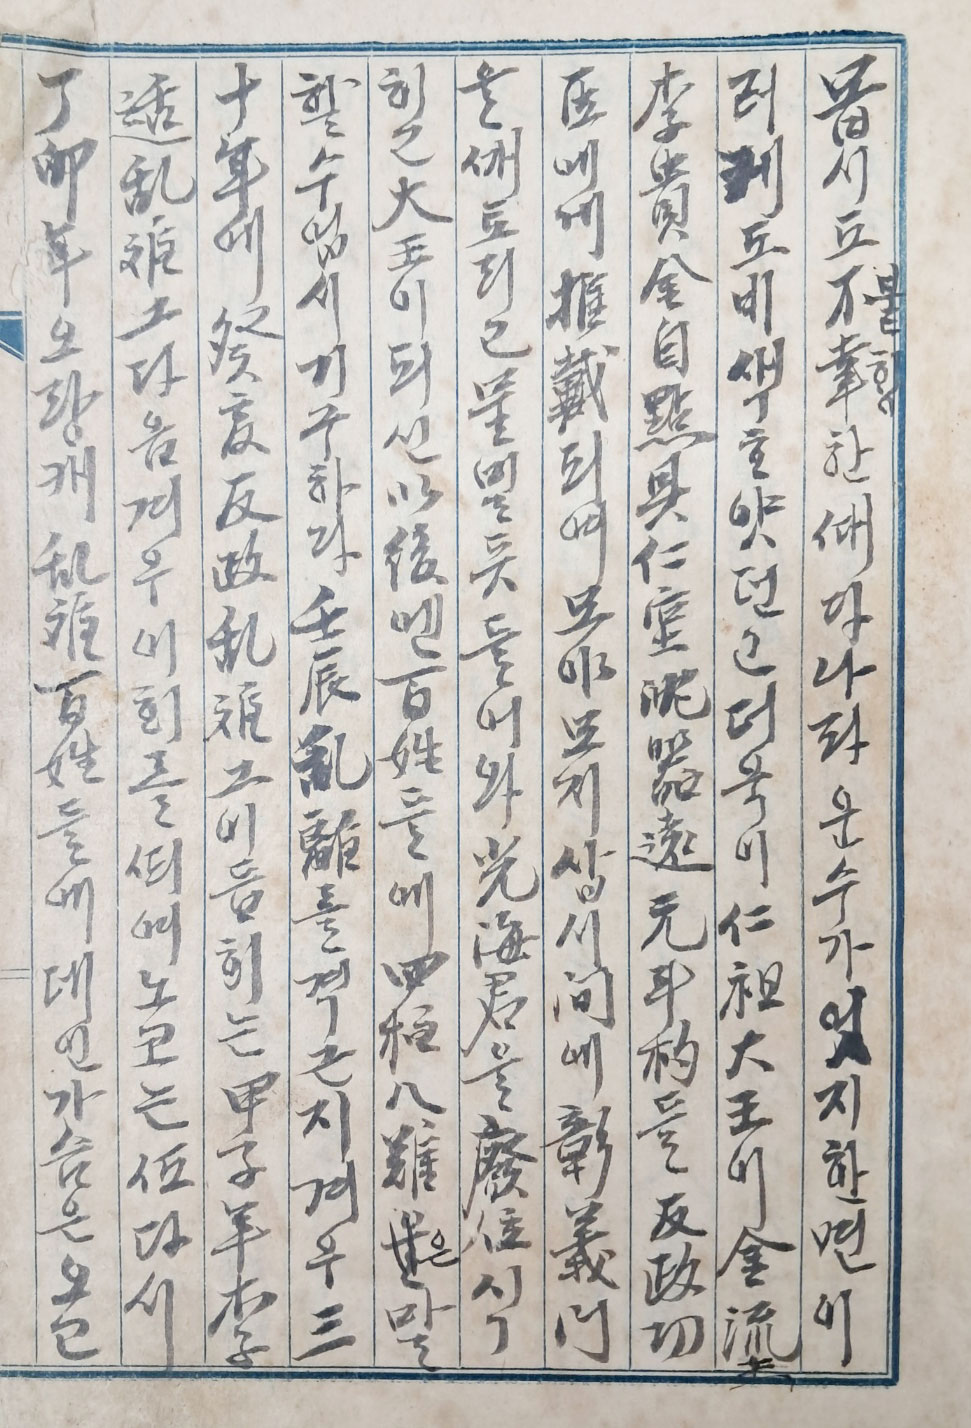 몹시도 不幸한 새 마나라 운수가 엇지한면이
러케도 비색호얏던고 더욱이 仁祖大王이 金流
李貴 金自點 具仁垕 沈器遠 元斗杓 등 反政功
臣에게 推戴되여 모야모지 삼시間에 彰義門
을 새도리고 물밀듯 들어와 光海君을 廢位시
히고 大王이 되신 以後엔 百姓들에 四柱八難은 말
할 수 업시 기구하다 壬辰亂離를 격근지 겨우 三
十年에 癸亥反政 乱难 그 이듬히는 甲子年 李
适乱难 그 다음 겨우 이히를 쉬여노코는 또 다시
丁卯年 오랑캐 乱难 百姓들에 대인가슴은 오고